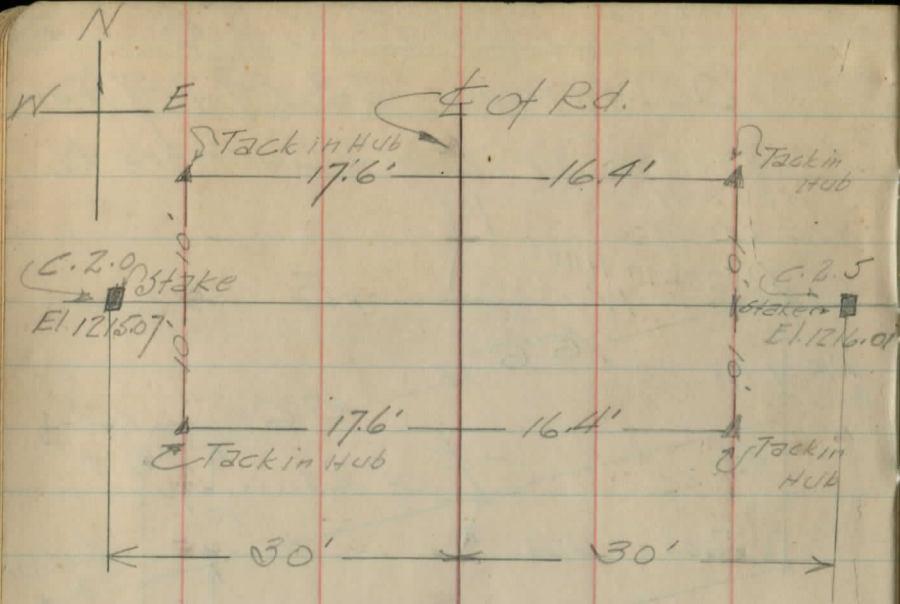 N
W E
℄ of Rd.
Tack in Hub
17.6' 16.4'
Tack in
Hub
10'
10'
C. 2.0
Stake
El. 1215.07
C. 2.5
Stake
El. 1216.01
10'
10'
17.6' 16.4'
Tack in Hub
Tack in
Hub
30' 30'